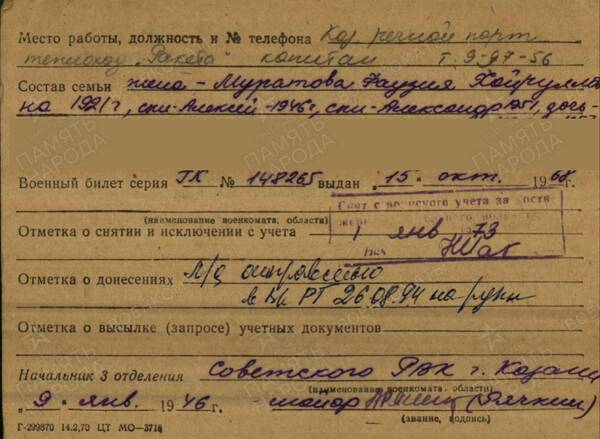 Место работы, должность и № телефона Каз. речной порт
теплоход „Ракета" капитан т. 9-97-56
Состав семьи жена – Муратова Фаузия Хайрулл
на 1921г, сын-Алексей-1946г, сын-Александр 1951, дочь-
Военный билет серия ГК № 148265 выдан „15" окт. 1968г.
(наименование военкомата, области)
Снят с воинского учета за дости
Отметка о снятии и исключении с учета 1 янв 73
Отметка о донесениях л/д отправлено
в ВК РТ 26.08.94 на руки
Отметка о высылке (запросе) учетных документов
Начальник 3 отделения Советского РВК г. Казани
(наименование военкомата, области)
„9" янв. 1946г. майор
(звание, подпись)
Г-299870 14.2.70 ЦТ МО—3718
ПАМЯТЬ НАРОДА